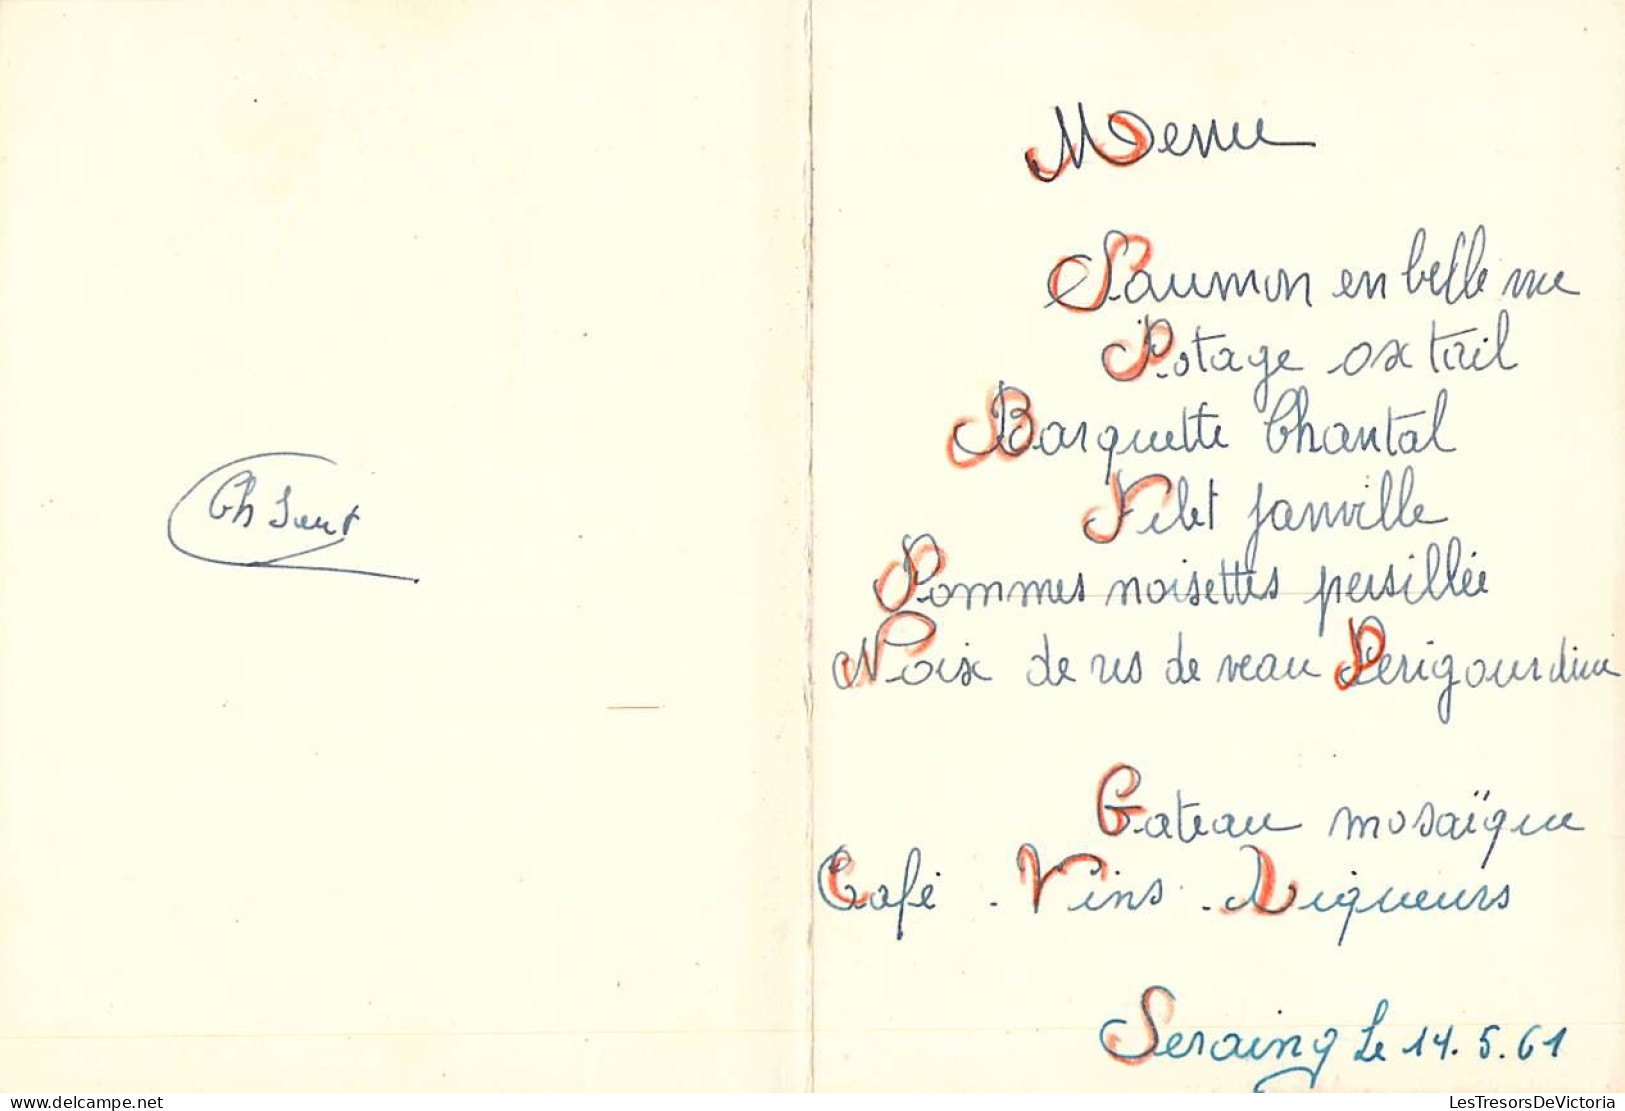 Menu
Saumon en belle vue
Potage oxtail
Barquette Chantal
Filet janville
Pommes noisettes persillée
Noix de ris de veau Perigourdine
Gateau mosaïque
Café - Vins - Liqueurs
Seraing Le 14. 5. 61
Ch
delcampe.net
LesTresorsDeVictoria